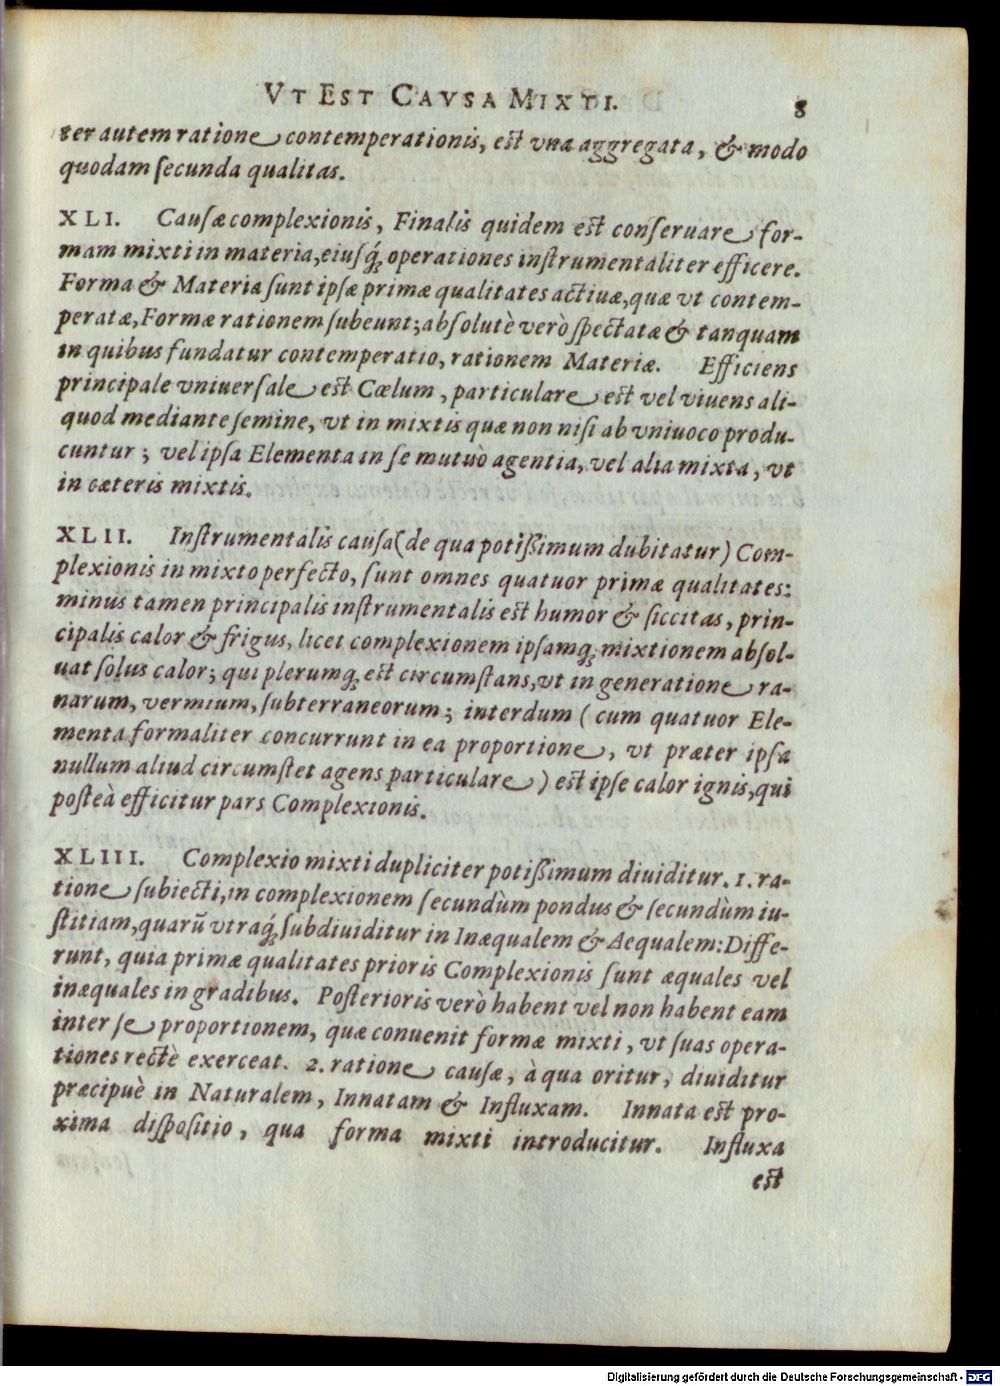 VT EST CAVSA MIXTI. 8
ter autem ratione contemperationis, est vna aggregata, & modo
quodam ſecunda qualitas.
XLI. Cauſæ complexionis, Finalis quidem est conſeruare for-
mam mixti in materia, eiusq́; operationes inſtrumentaliter efficere.
Forma & Materia ſunt ipſæ primæ qualitates actiuæ, quæ vt contem-
peratæ, Formæ rationem ſubeunt; abſolutè verò ſpectatæ & tanquam
in quibus fundatur contemperatio, rationem Materiæ. Efficiens
principale vniuerſale est Cœlum, particulare est vel viuens ali-
quod mediante ſemine, vt in mixtis quæ non niſi ab vniuoco produ-
cuntur; vel ipſa Elementa in ſe mutuò agentia, vel alia mixta, vt
in cæteris mixtis.
XLII. Inſtrumentalis cauſa (de qua potißimum dubitatur) Com-
plexionis in mixto perfecto, ſunt omnes quatuor primæ qualitates:
minus tamen principalis inſtrumentalis est humor & ſiccitas, prin-
cipalis calor & frigus, licet complexionem ipſamq; mixtionem abſol-
uat ſolus calor; qui plerumq; est circumſtans, vt in generatione ra-
narum, vermium, ſubterraneorum; interdum (cum quatuor Ele-
menta formaliter concurrunt in ea proportione, vt præter ipſa
nullum aliud circumſtet agens particulare) est ipſe calor ignis, qui
poſteà efficitur pars Complexionis.
XLIII. Complexio mixti dupliciter potißimum diuiditur. 1. ra-
tione ſubiecti, in complexionem ſecundùm pondus & ſecundùm iu-
ſtitiam, quarū vtraq́; ſubdiuiditur in Inæqualem & Aequalem: Diffe-
runt, quia primæ qualitates prioris Complexionis ſunt æquales vel
inæquales in gradibus. Poſterioris verò habent vel non habent eam
inter ſe proportionem, quæ conuenit formæ mixti, vt ſuas opera-
tiones rectè exerceat. 2. ratione cauſæ, à qua oritur, diuiditur
præcipuè in Naturalem, Innatam & Influxam. Innata est pro-
xima diſpoſitio, qua forma mixti introducitur. Influxa
est
Digitalisierung gefördert durch die Deutsche Forschungsgemeinschaft - DFG